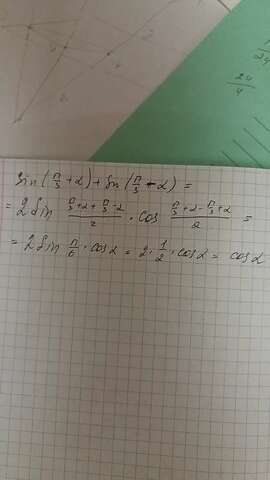 24
4
sin(π/3 + α) + sin(π/3 - α) =
= 2 sin (π/3 + α + π/3 - α)/2 · cos (π/3 + α - π/3 + α)/2 =
= 2 sin π/6 · cos α = 2 · 1/2 · cos α = cos α